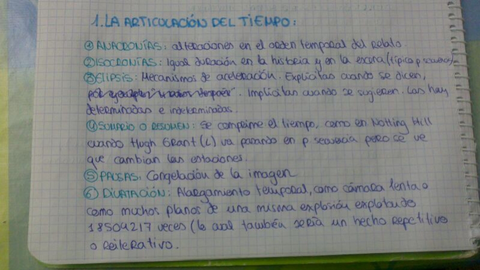 1. LA ARTICULACIÓN DEL TIEMPO:
① ANACRONÍAS: alteraciones en el orden temporal del relato.
② ISOCRONÍAS: Igual duración en la historia y en la escena (típico p. secuencia)
③ ELIPSIS: Mecanismos de aceleración. Explícitas cuando se dicen,
Implícitas cuando se sugieren. Las hay
determinadas e indeterminadas.
④ SUMARIO O RESUMEN: Se comprime el tiempo, como en Notting Hill
cuando Hugh Grant va paseando en p secuencia pero se ve
que cambian las estaciones.
⑤ PAUSAS: Congelación de la imagen
⑥ DILATACIÓN: Alargamiento temporal, como cámara lenta o
como muchos planos de una misma explosión explotando
18504217 veces (lo cual también sería un hecho repetitivo
o reiterativo.